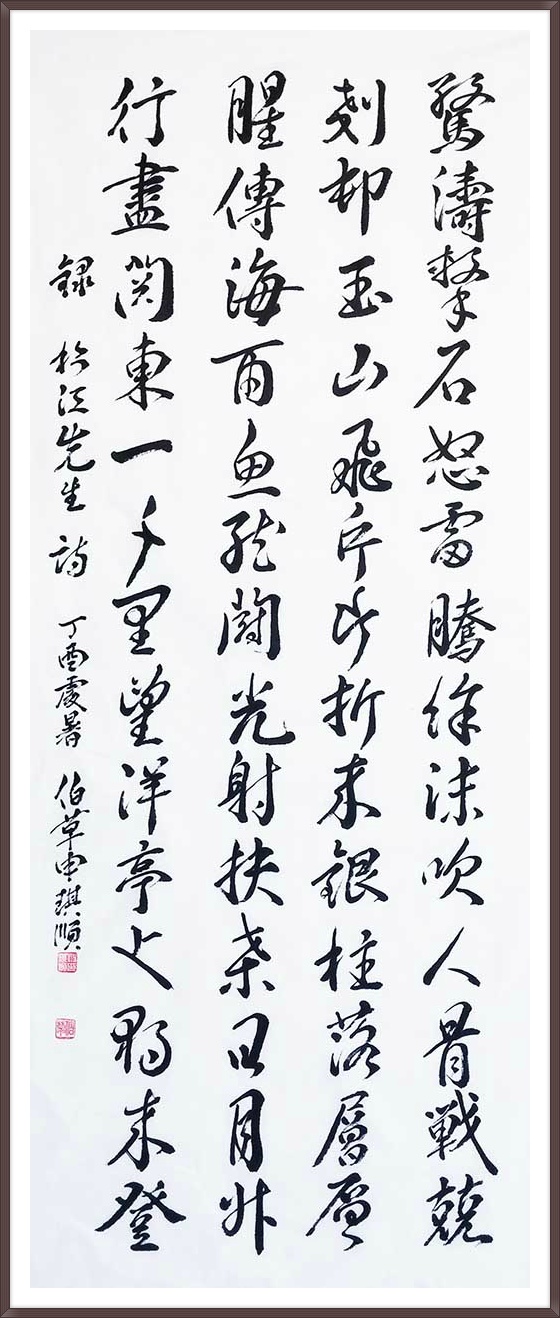 驚濤擊石怒雷騰餘沫吹人骨戰兢
剗却玉山飛片片折来銀柱落層層
腥傳海面魚龍闘光射扶桑日月昇
行盡関東一千里望洋亭上獨来登
録 松江先生 詩 丁酉處暑 伯草申琪順